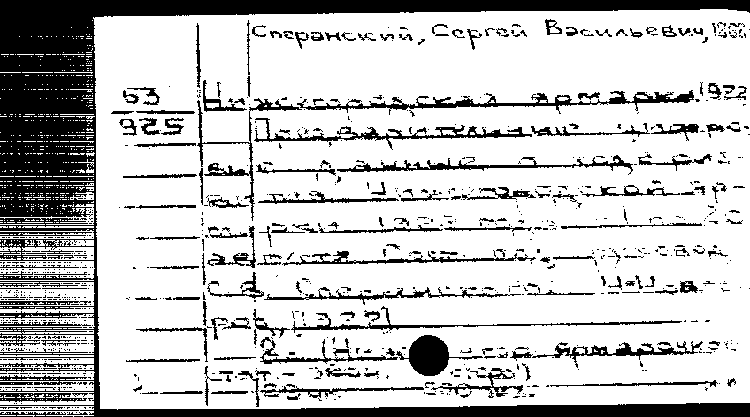 Сперанский, Сергей Васильевич,
63 Нижегородская ярмарка 1922
925 Предварительные цифро-
вые данные о ходе раз-
вития Нижегородской яр-
марки 1922 года с 1 по 20
августа Сост. под
С.В. Сперанского. Н-Новго-
род, [1922]
2. (Ниж гор. ярмарочное
стат.- экон. бюро)